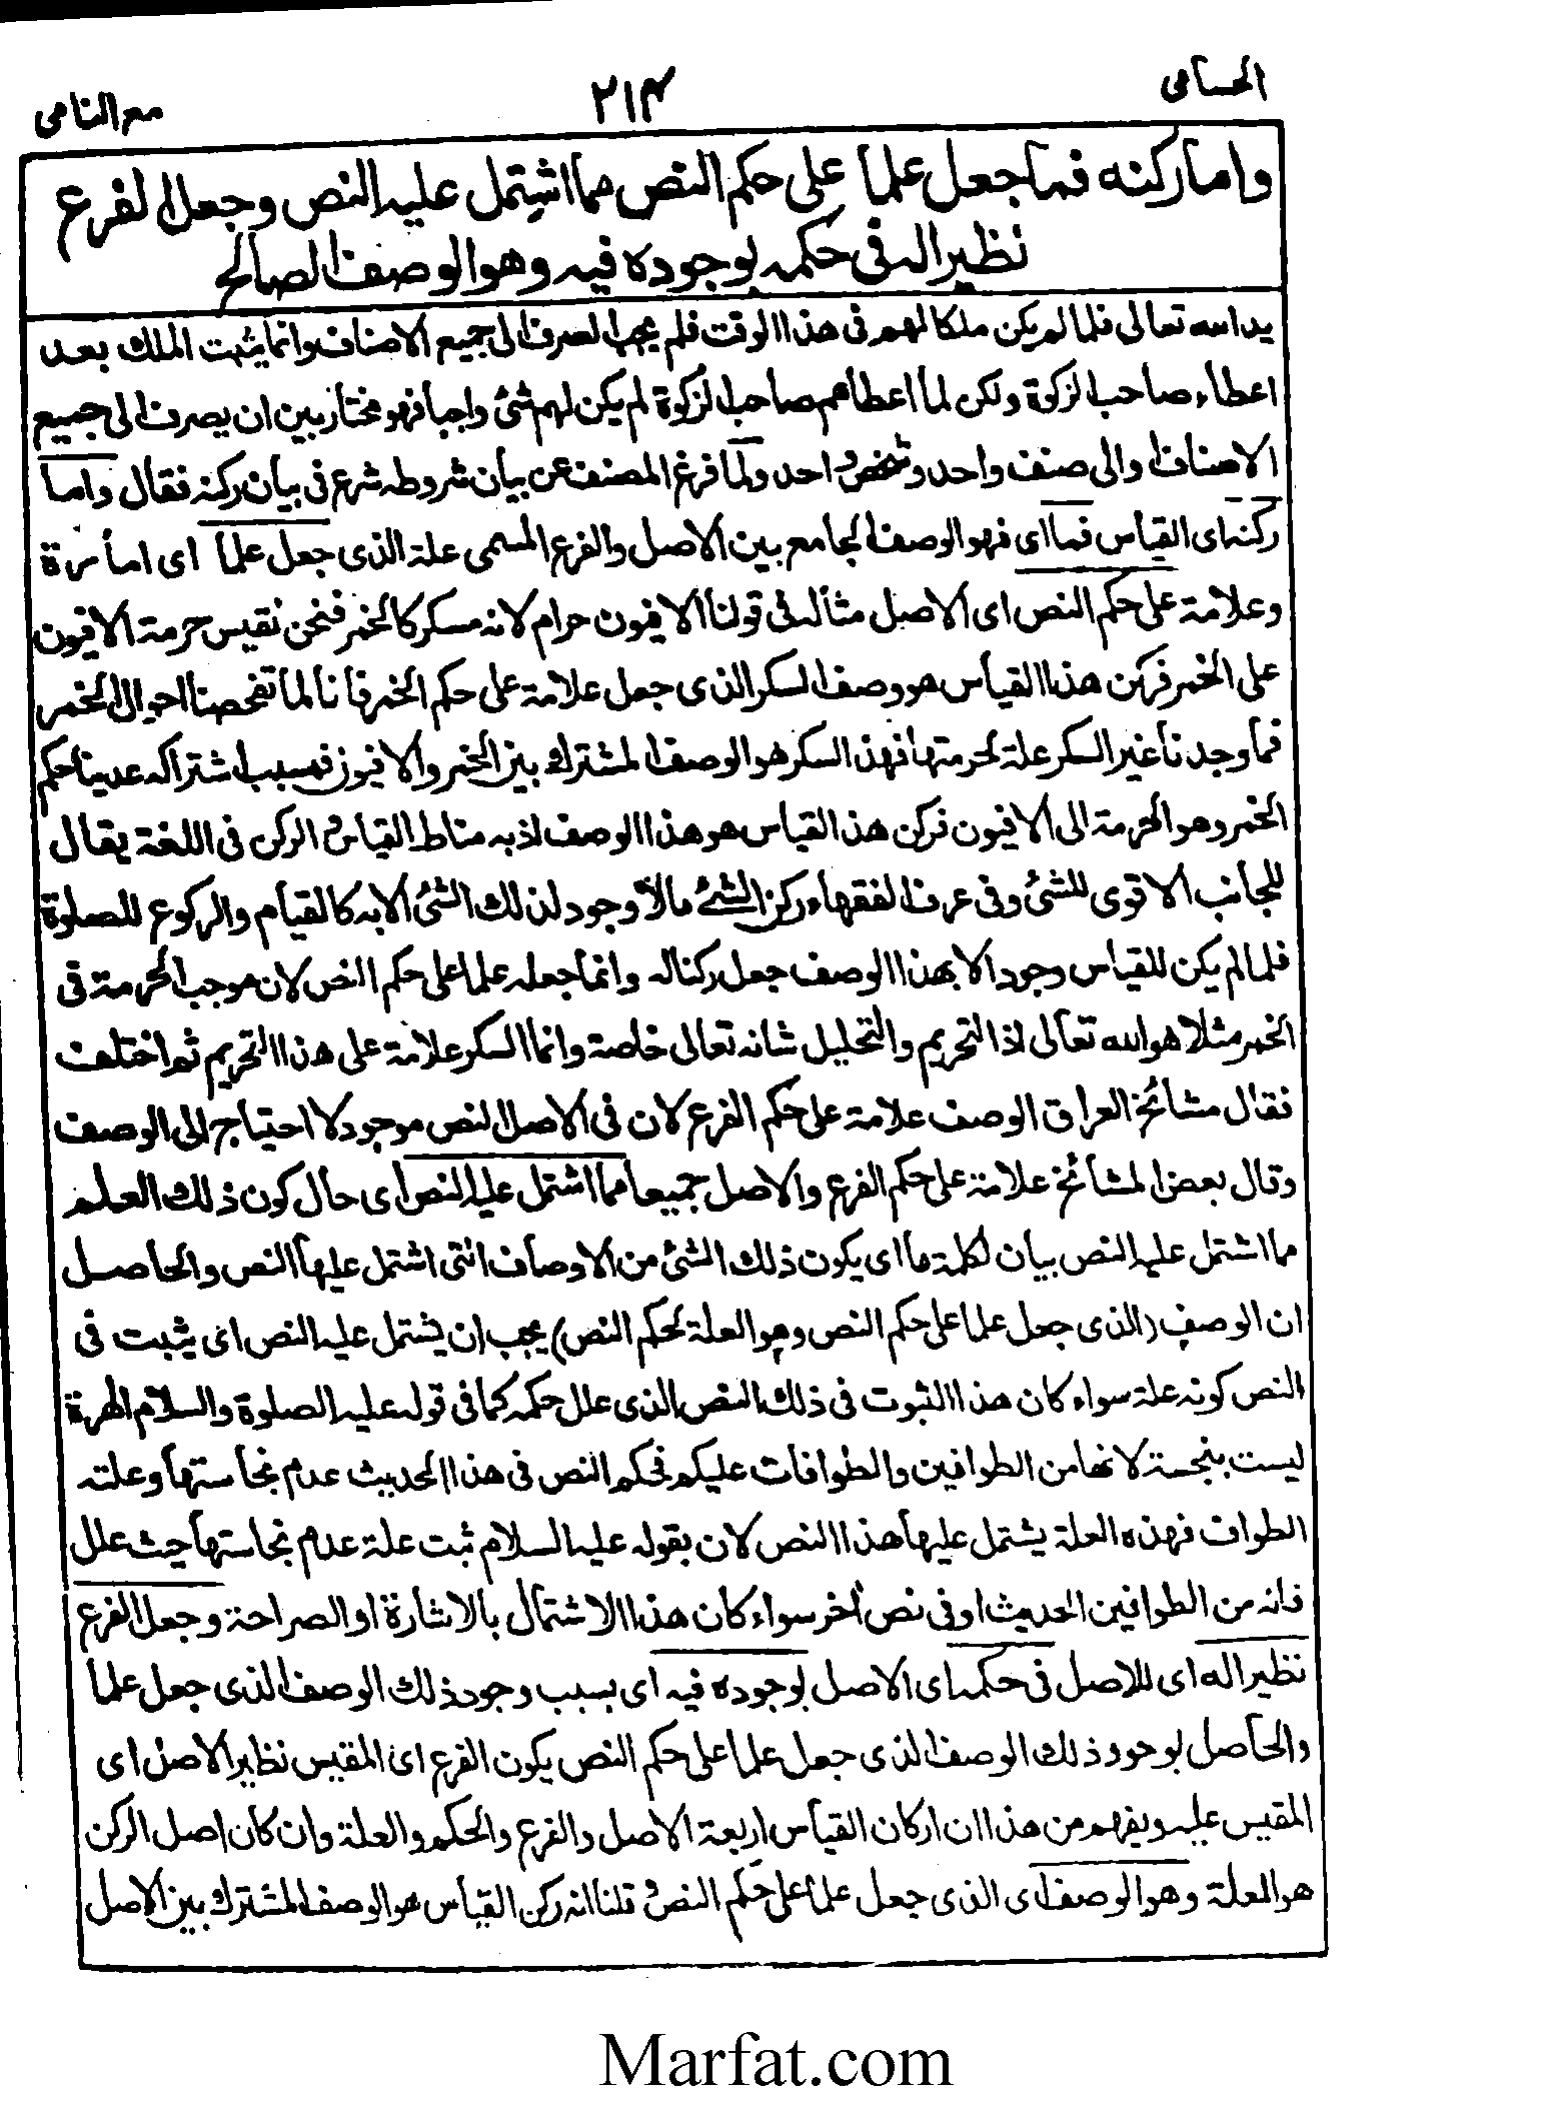 الحسامی
۲۱۴
مع النامی
واما ركنه فما جعل علما على حكم النص مما اشتمل عليه النص وجعل الفرع
نظيرا له فى حكمه بوجوده فيه وهو الوصف الصالح
يد الله تعالى فلما لم يكن ملكا لهم فى هذا الوقت فلم يجب الصرف الى جميع الاصناف وانما يثبت الملك بعد
اعطاء صاحب الزكوة ولكن لما اعطاهم صاحب الزكوة لم يكن لهم شئ واجبا فهو مختار بين ان يصرف الى جميع
الاصناف والى صنف واحد وشخص واحد ولما فرغ المصنف عن بيان شروطه شرع فى بيان ركنه فقال واما
ركنه اى القياس فما اى فهو الوصف الجامع بين الاصل والفرع المسمى علة الذى جعل علما اى امارة
وعلامة على حكم النص اى الاصل مثاله فى قولنا الافيون حرام لانه مسكر كالخمر فنحن نقيس حرمة الافيون
على الخمر فركن هذا القياس هو وصف السكر الذى جعل علامة على حكم الخمر فانا لما تفحصنا احوال الخمر
فما وجدنا غير السكر علة لحرمتها فهذ السكر هو الوصف المشترك بين الخمر والافيون فبسبب اشتراكه عدينا حكم
الخمر وهو الحرمة الى الافيون فركن هذ القياس هو هذا الوصف اذ به مناط القياس و الركن فى اللغة يقال
للجانب الاقوى للشئ وفى عرف الفقهاء ركن الشئ مالا وجود لذلك الشئ الا به كالقيام والركوع للصلوة
فلما لم يكن للقياس وجود الا بهذا الوصف جعل ركنا له وانما جعله علما على حكم النص لان موجب الحرمة فى
الخمر مثلا هو الله تعالى اذ التحريم والتحليل شانه تعالى خاصة وانما السكر علامة على هذا التحريم ثم اختلفت
فقال مشائخ العراق الوصف علامة على حكم الفرع لان فى الاصل النص موجود لا احتياج الى الوصف
وقال بعض المشائخ علامة على حكم الفرع والاصل جميعا مما اشتمل عليه النص اى حال كون ذلك العلم
مما اشتمل عليه النص بيان لكلمة ما اى يكون ذلك الشئ من الاوصاف التى اشتمل عليها النص والحاصل
ان الوصف (الذى جعل علما على حكم النص وهو العلة لحكم النص) يجب ان يشتمل عليه النص اى يثبت فى
النص كونه علة سواء كان هذا الثبوت فى ذلك النص الذى علل حكمه كما فى قوله عليه الصلوة والسلام الهرة
ليست بنجسة لانها من الطوافين والطوافات عليكم فحكم النص فى هذا الحديث عدم نجاستها وعلته
الطواف فهذه العلة يشتمل عليها هذا النص لان بقوله عليه السلام ثبت علة عدم نجاستها حيث علل
فانه من الطوافين الحديث او فى نص اخر سواء كان هذا الاشتمال بالاشارة او الصراحة وجعل الفرع
نظيرا له اى للاصل فى حكمه اى الاصل بوجوده فيه اى بسبب وجود ذلك الوصف الذى جعل علما
والحاصل لوجود ذلك الوصف الذى جعل علما على حكم النص يكون الفرع اى المقيس نظير الاصل اى
المقيس عليه ويفهم من هذا ان اركان القياس اربعة الاصل والفرع والحكم والعلة وان كان اصل الركن
هو العلة وهو الوصف اى الذى جعل علما على حكم النص و قلنا انه ركن القياس هو الوصف المشترك بين الاصل
Marfat.com